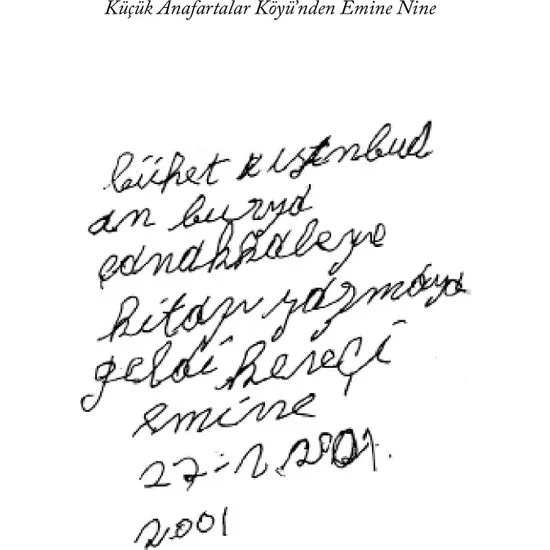 Küçük Anafartalar Köyü'nden Emine Nine
büket istanbud
an burya
çanakkaleye
kitap yazmaya
geldi kereçi
emine
27-1 2001.
2001